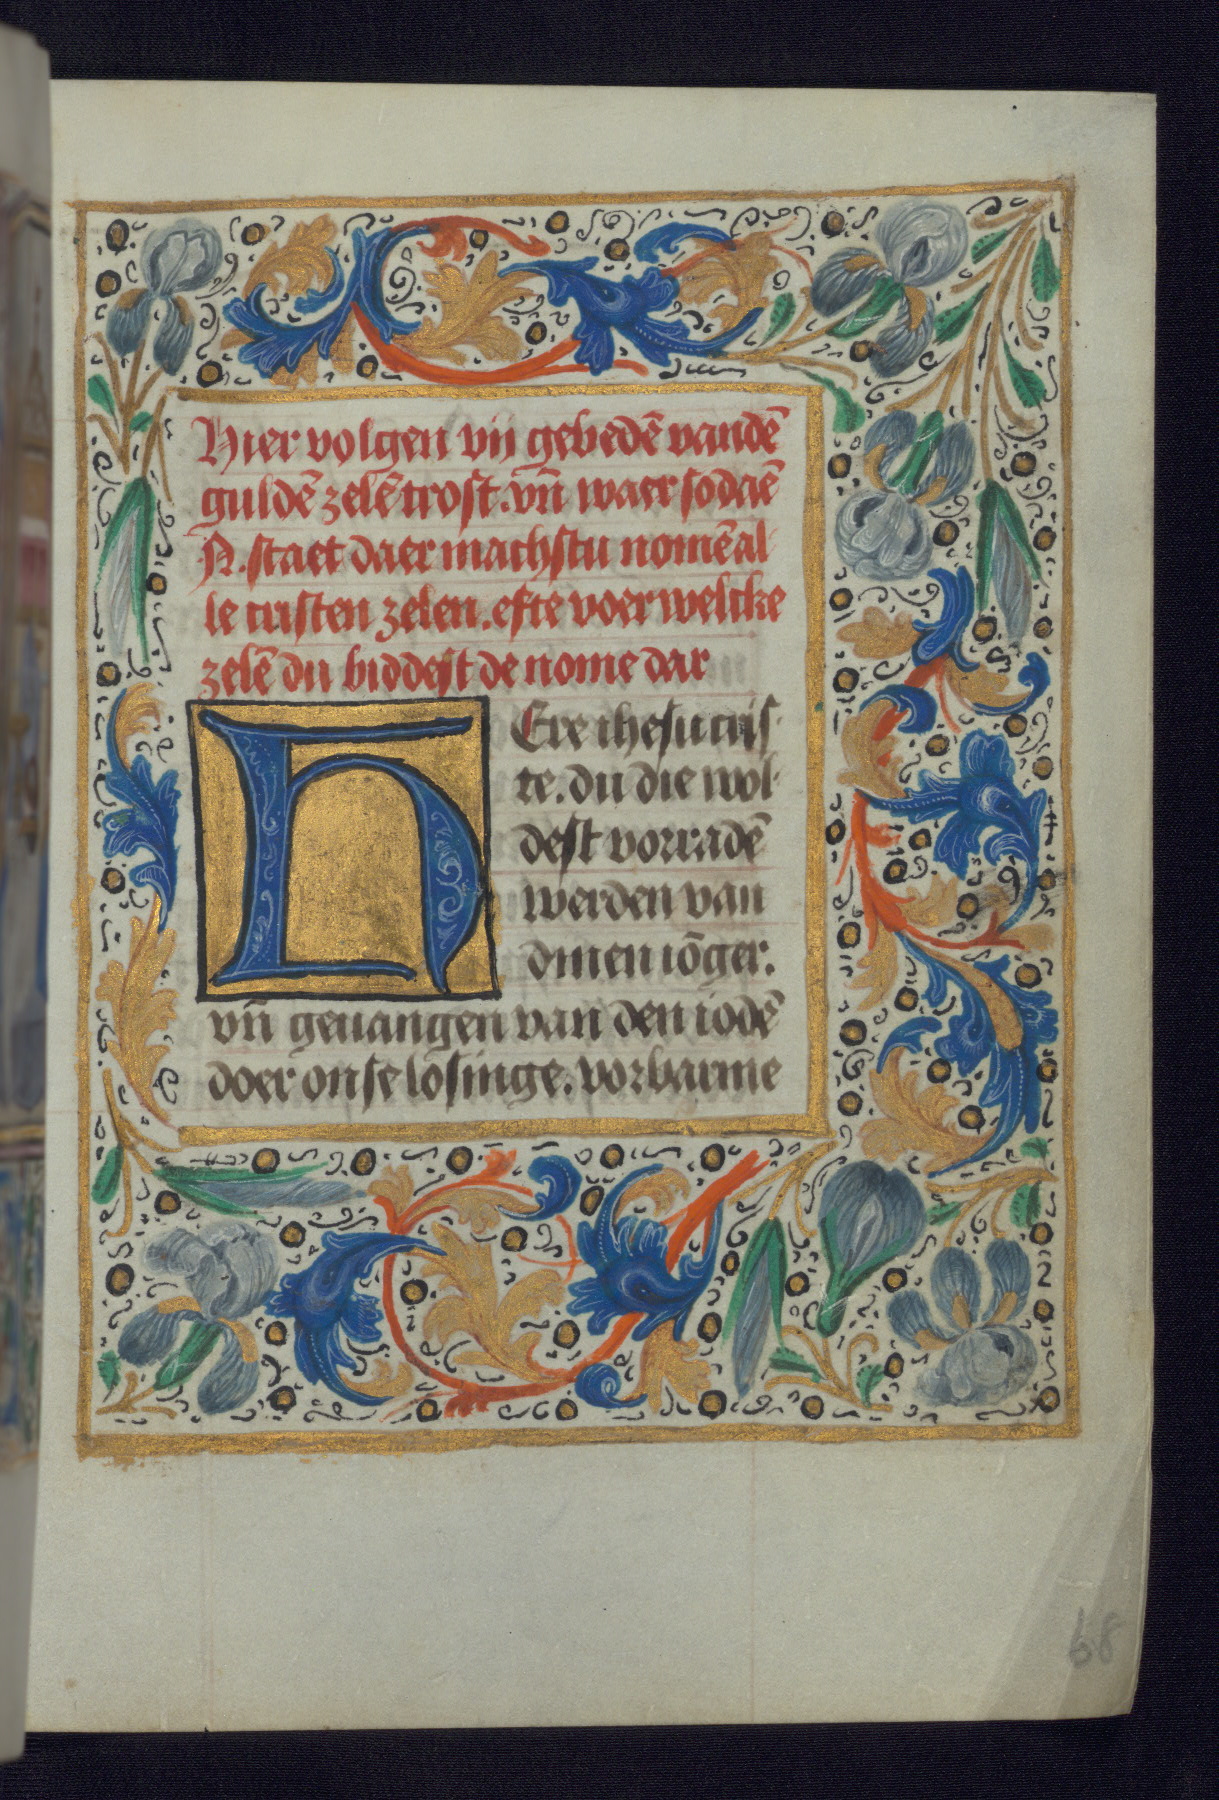 Hier volgen vij gebedē vandē
guldē zelē trost. vn̄ waer sodaē
N. staet daer machstu nomē al
le cristen zelen. efte voer welcke
zelē du biddest de nome dar
HEre ihesu cris
te. du die wol
dest vorradē
werden van
dinen iōger.
vn̄ geuangen van den iodē
doer onse losinge. vorbarme
68